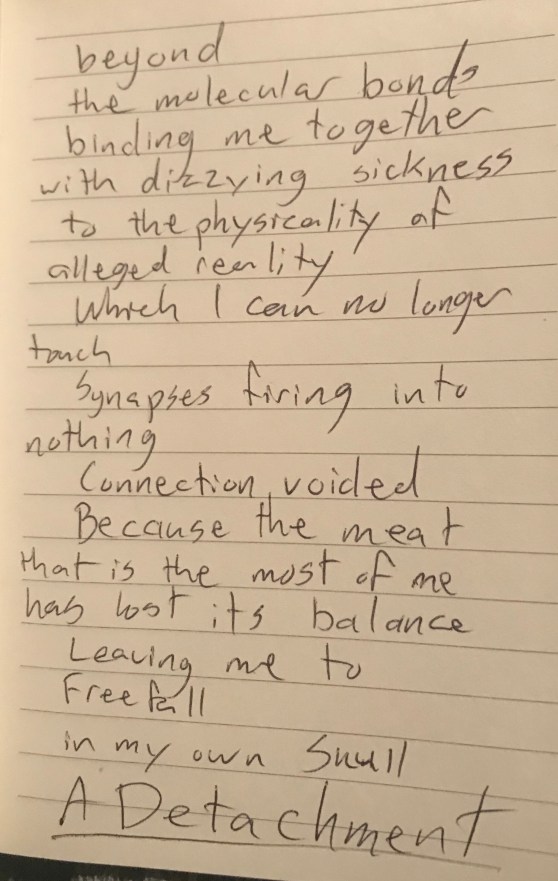 beyond
the molecular bonds
binding me together
with dizzying sickness
to the physicality of
alleged reality
Which I can no longer
touch
Synapses firing into
nothing
Connection voided
Because the meat
that is the most of me
has lost its balance
Leaving me to
Freefall
in my own Skull
A Detachment